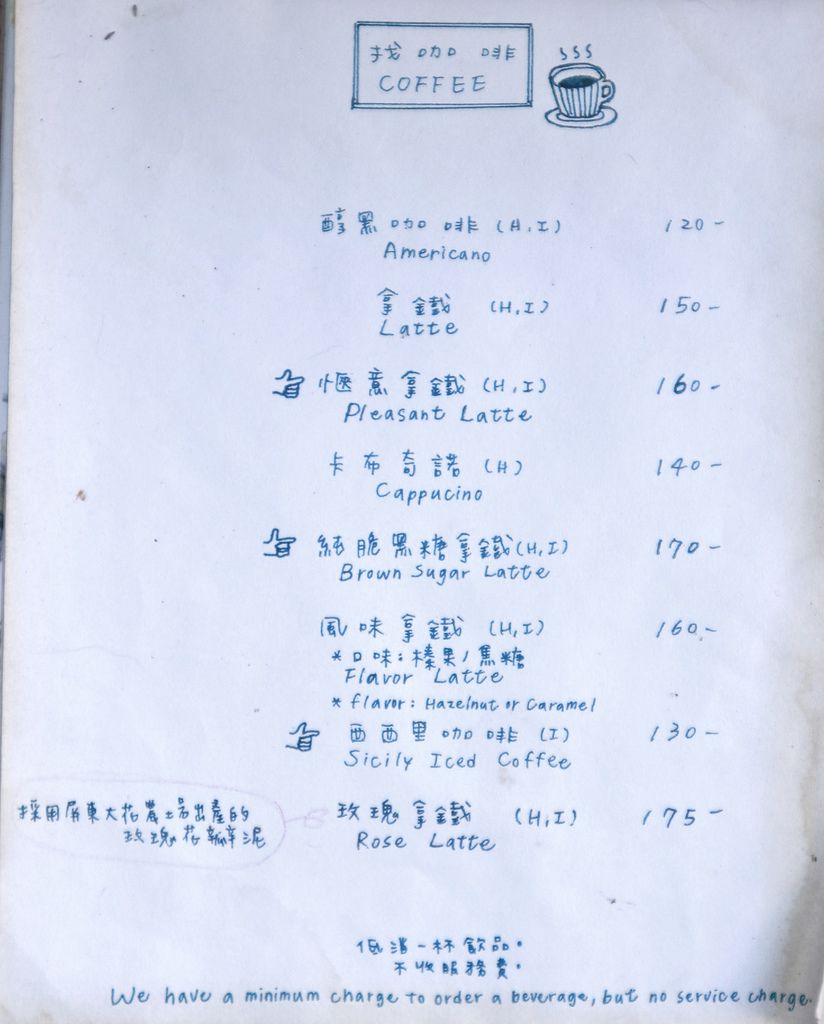 找咖啡
COFFEE
醇黑咖啡 (H,I) 120-
Americano
拿鐵 (H,I) 150-
Latte
愜意拿鐵 (H,I) 160-
Pleasant Latte
卡布奇諾 (H) 140-
Cappucino
純脆黑糖拿鐵 (H,I) 170-
Brown Sugar Latte
風味拿鐵 (H,I) 160-
* 口味：榛果/焦糖
Flavor Latte
* flavor: Hazelnut or Caramel
西西里咖啡 (I) 130-
Sicily Iced Coffee
採用屏東大花農場出產的
玫瑰花瓣泥
玫瑰拿鐵 (H,I) 175-
Rose Latte
低消一杯飲品。
不收服務費。
We have a minimum charge to order a beverage, but no service charge.